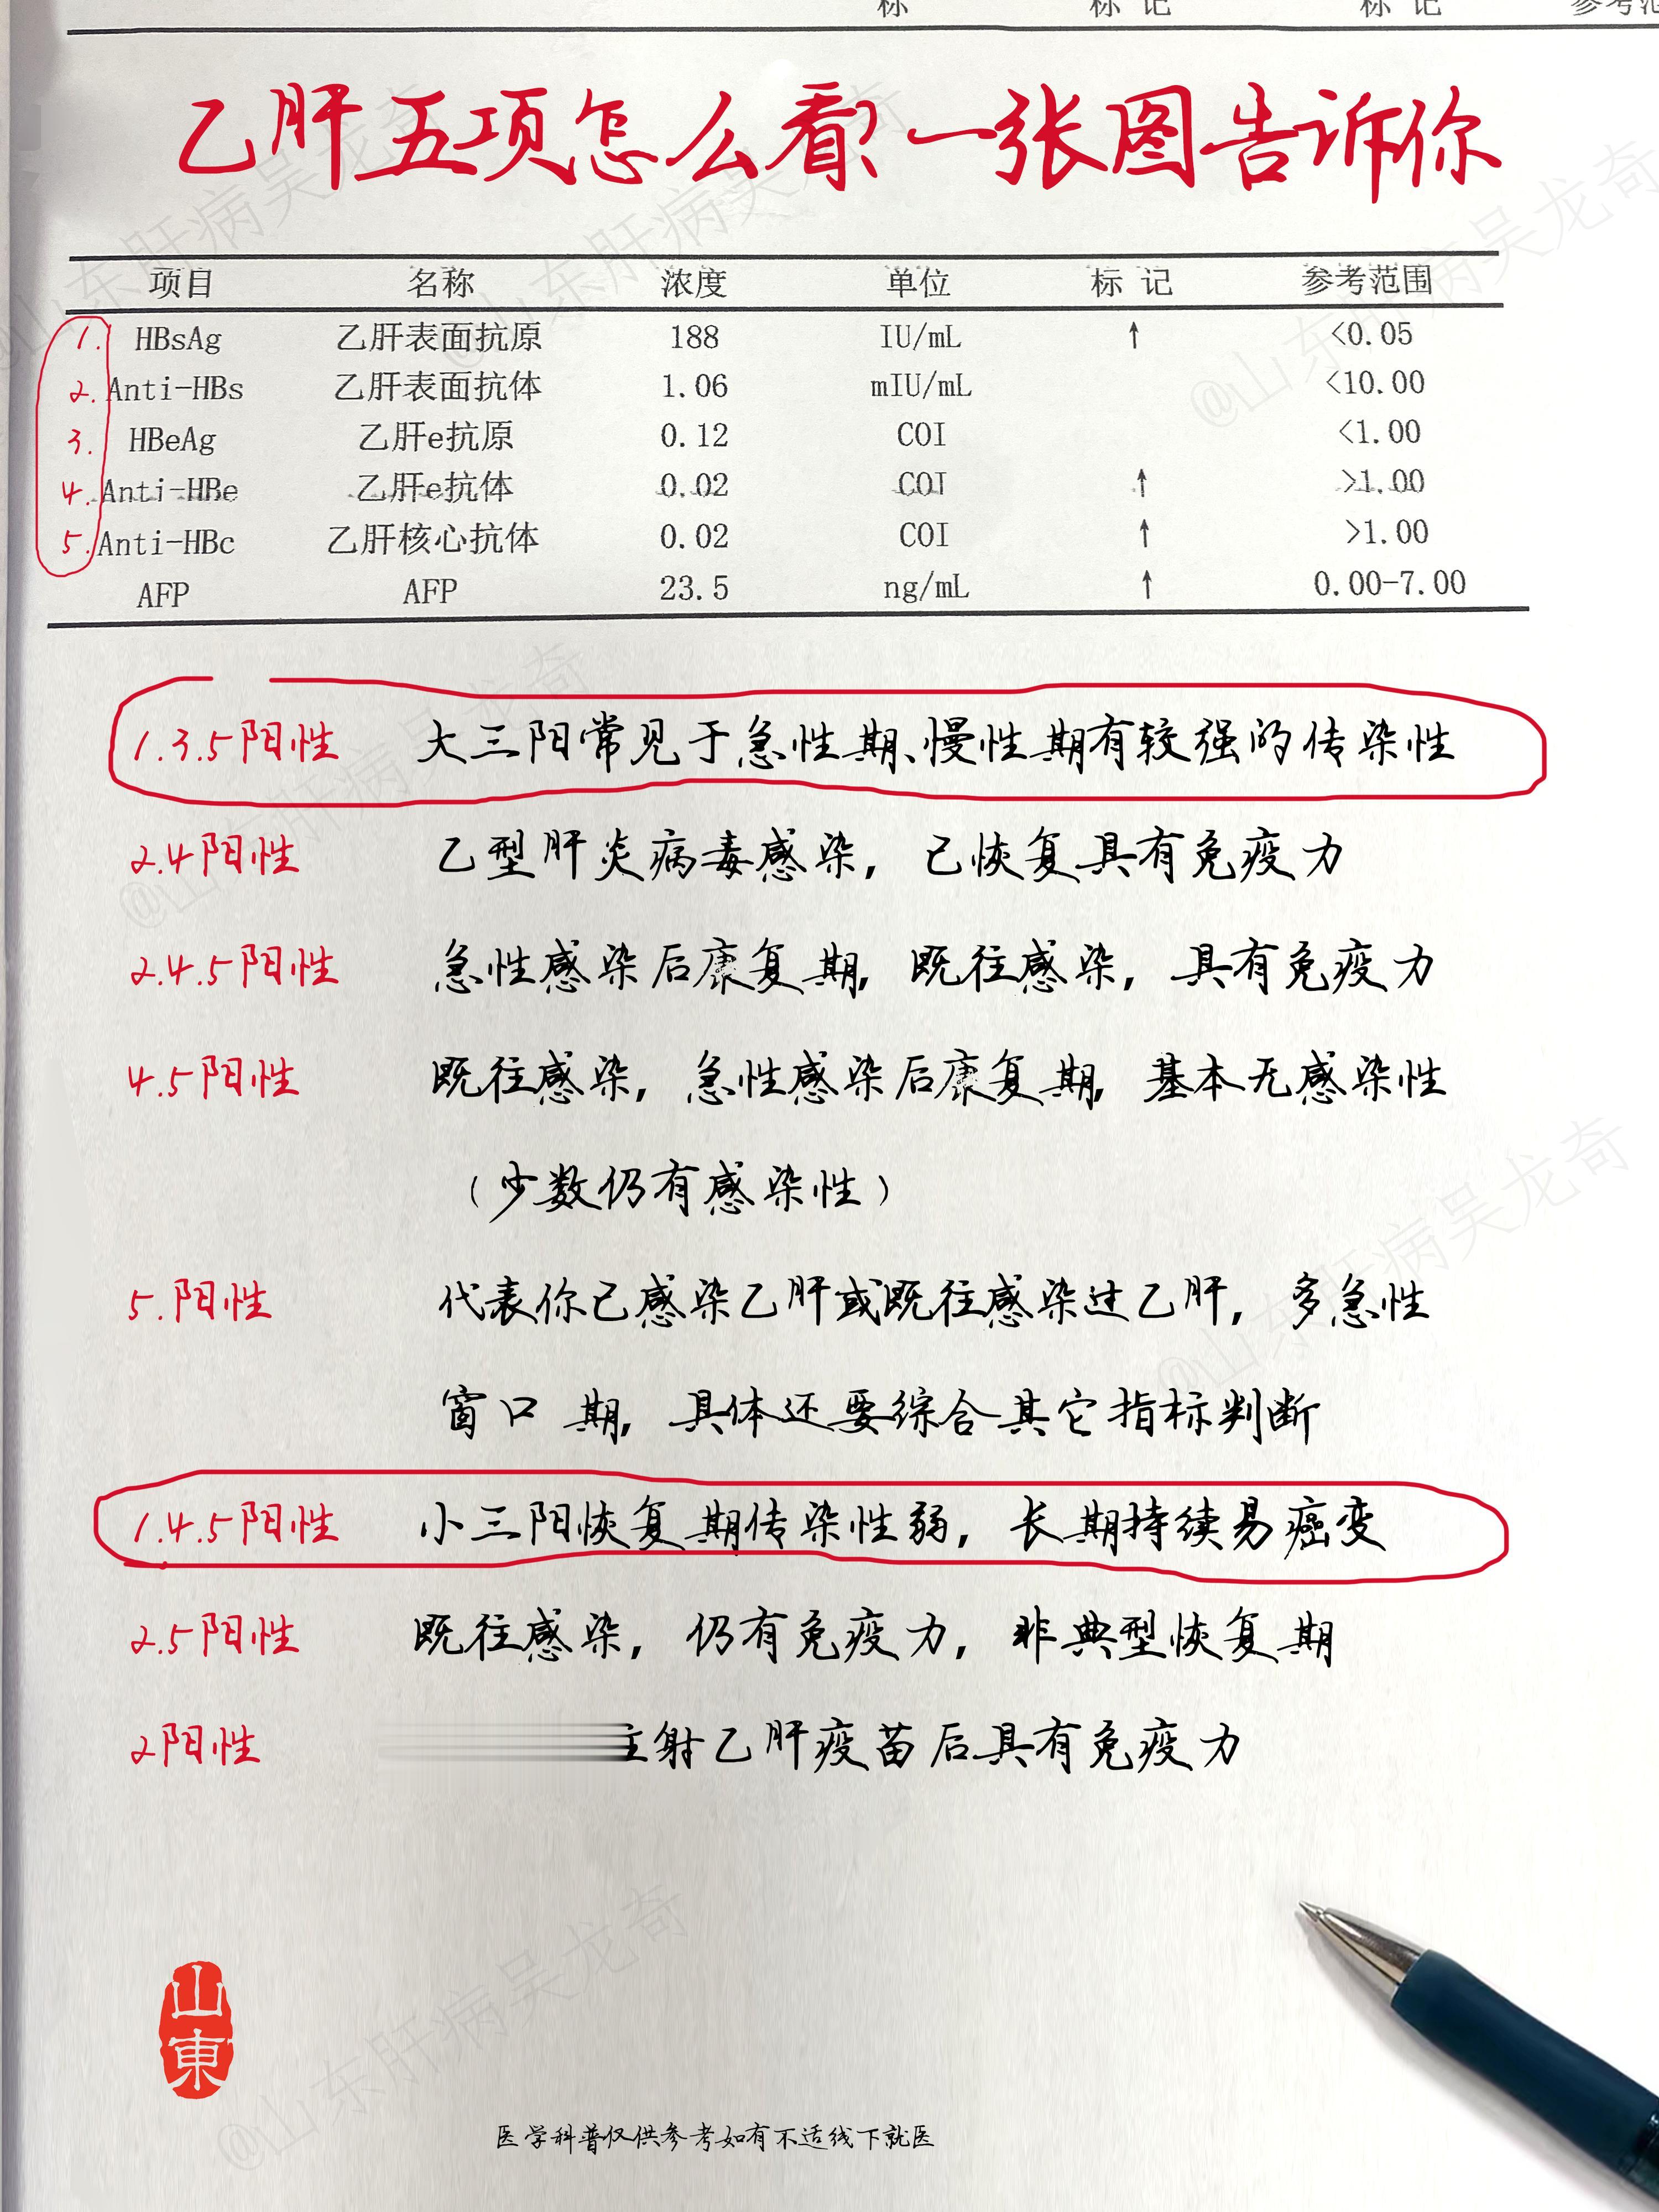 标 标 记 标 记
乙肝五项怎么看?一张图告诉你
项目 名称 浓度 单位 标 记 参考范围
1. HBsAg 乙肝表面抗原 188 IU/mL ↑ <0.05
2. Anti-HBs 乙肝表面抗体 1.06 mIU/mL <10.00
3. HBeAg 乙肝e抗原 0.12 COI <1.00
4. Anti-HBe 乙肝e抗体 0.02 COI ↑ >1.00
5. Anti-HBc 乙肝核心抗体 0.02 COI ↑ >1.00
AFP AFP 23.5 ng/mL ↑ 0.00-7.00
1.3.5阳性 大三阳常见于急性期、慢性期有较强的传染性
2.4阳性 乙型肝炎病毒感染，已恢复具有免疫力
2.4.5阳性 急性感染后康复期，既往感染，具有免疫力
4.5阳性 既往感染，急性感染后康复期，基本无感染性
（少数仍有感染性）
5.阳性 代表你已感染乙肝或既往感染过乙肝，多急性
窗口 期，具体还要综合其它指标判断
1.4.5阳性 小三阳恢复期传染性弱，长期持续易癌变
2.5阳性 既往感染，仍有免疫力，非典型恢复期
2阳性 射乙肝疫苗后具有免疫力
山東
医学科普仅供参考如有不适线下就医
@山东肝病吴龙奇